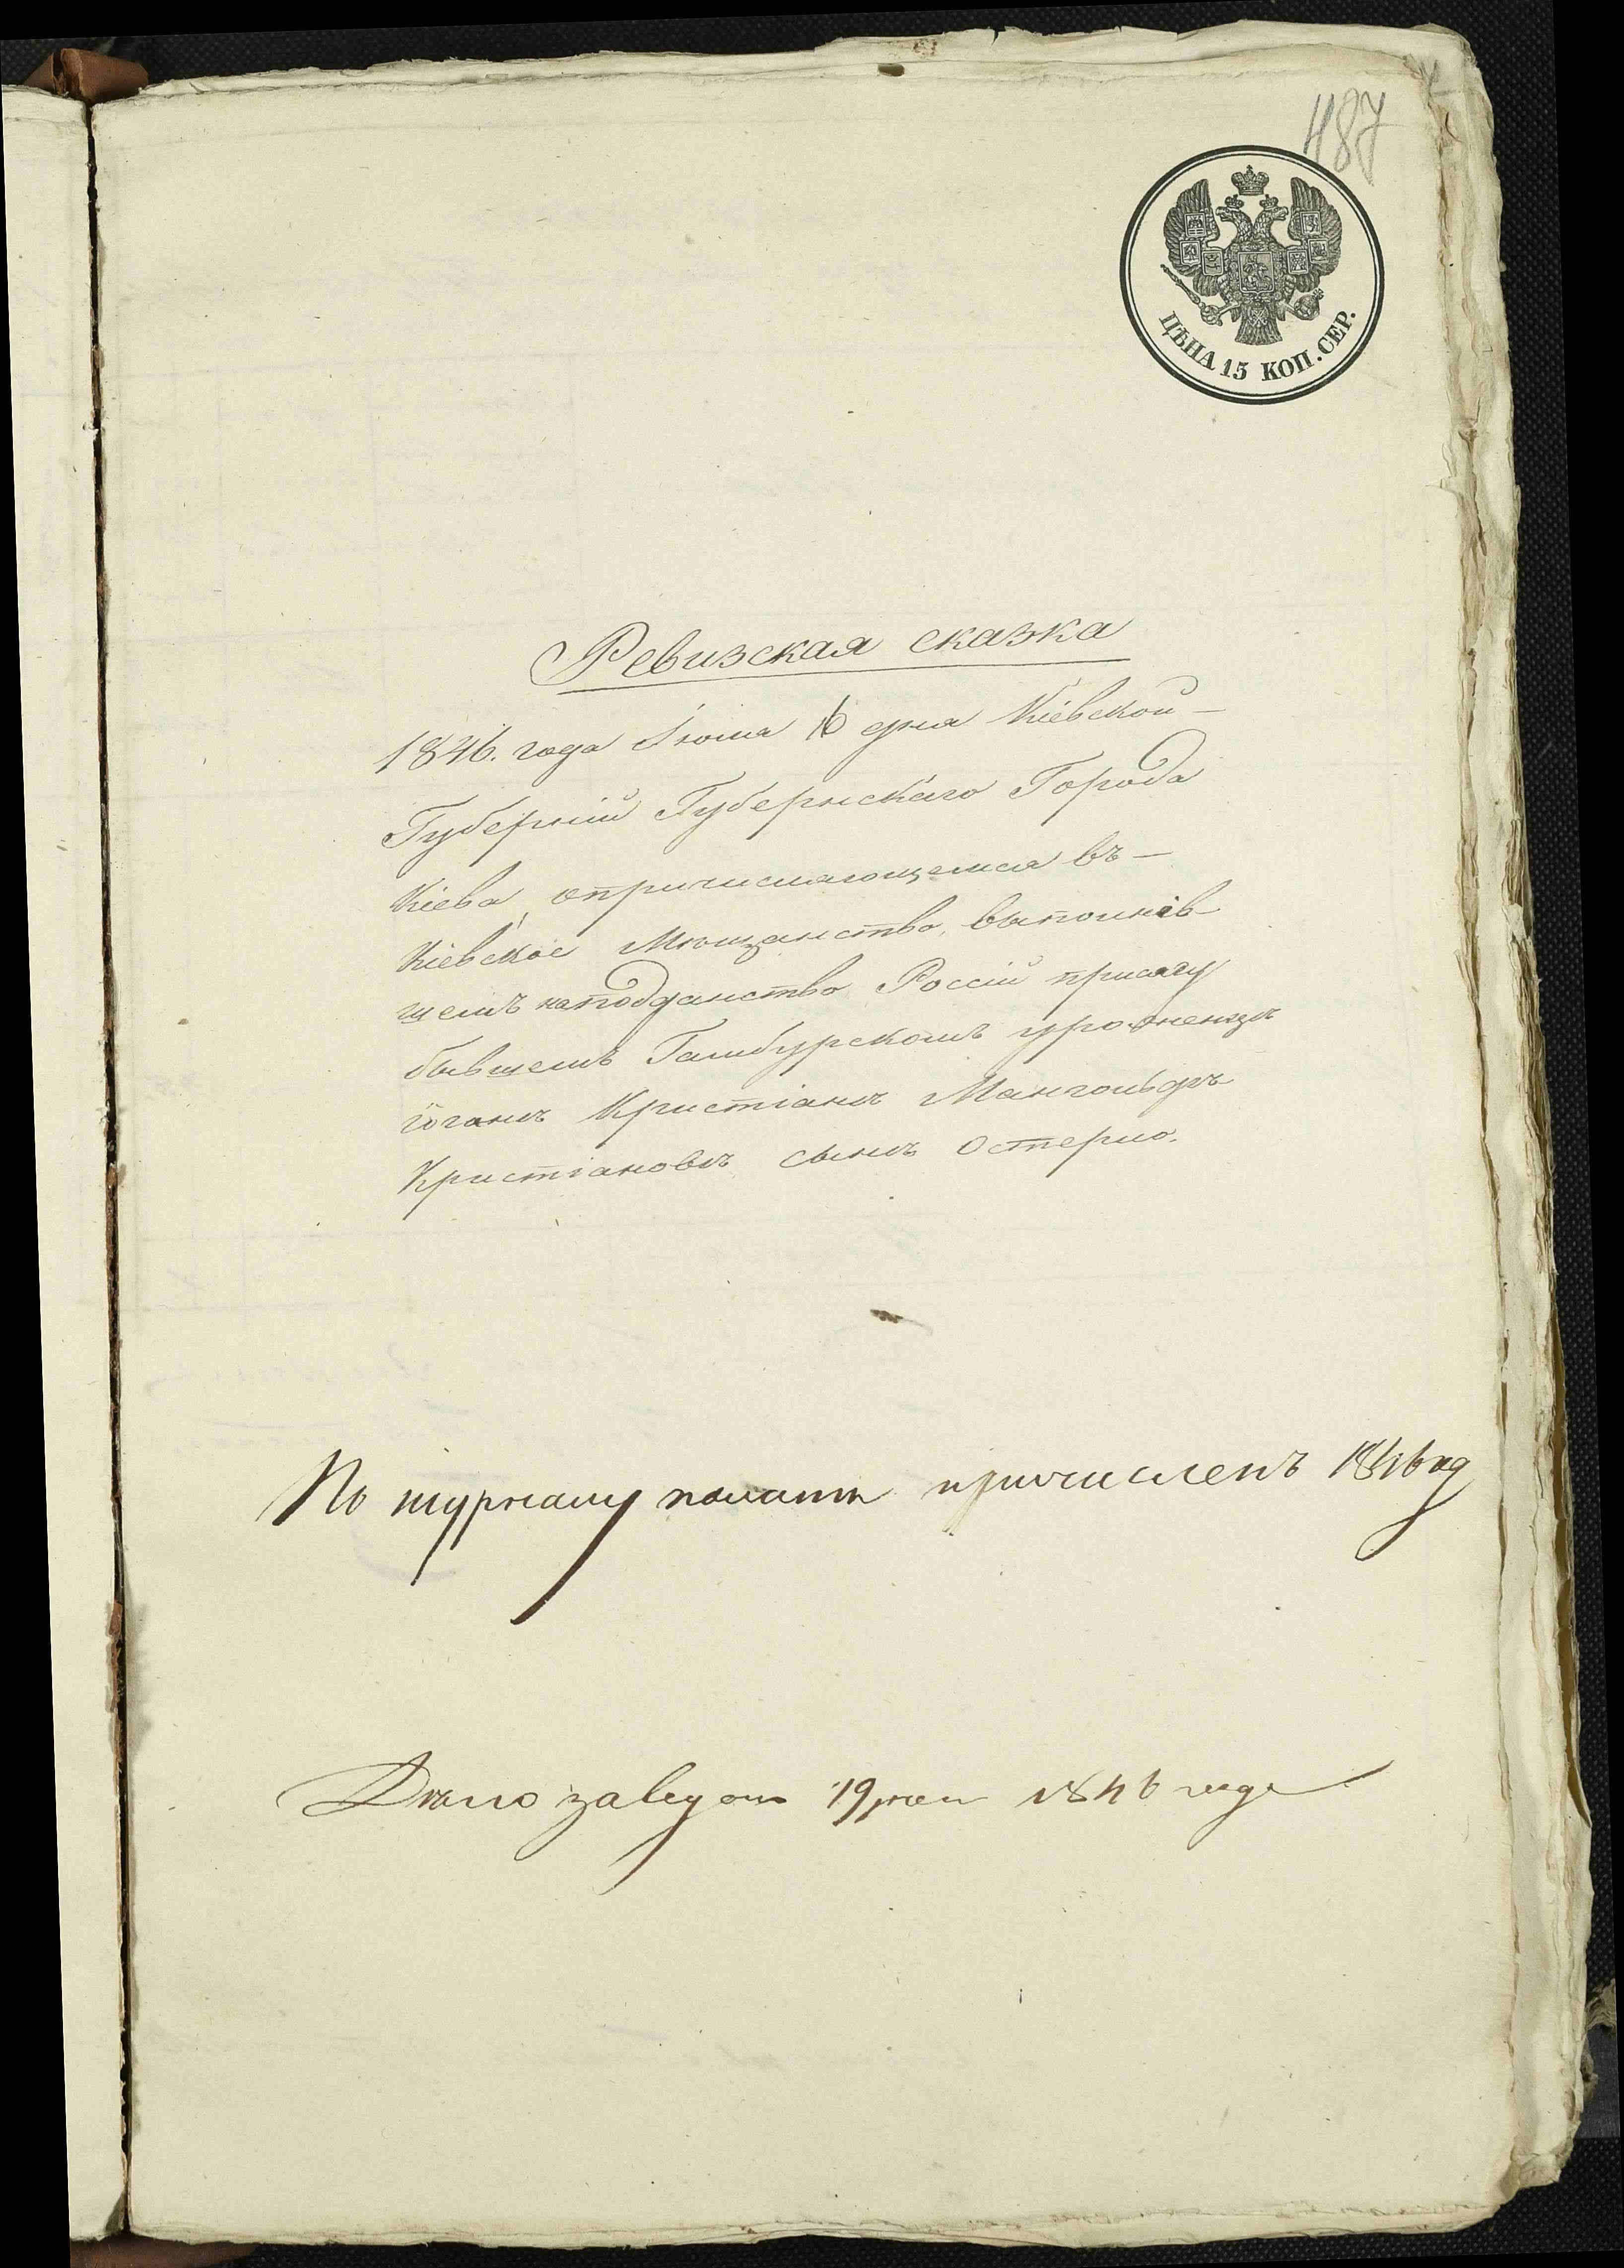 487
ЦѢНА 15 КОП. СЕР.
Ревизская сказка
1846. года Іюля 16 дня Кіевской
Губерніи Губернскаго Города
Кіева, опричисляющемся въ
Кіевское Мѣщанство, выполнив
шемъ на подданство Россіи присягу
бывшемъ Гамбурскомъ уроженцѣ
Іоганъ Кристіанъ Мангольдъ
Кристіановъ сынъ Остерло.
По журналу палаты причисленъ 1846 год
Дѣло заведено 19 1846 года